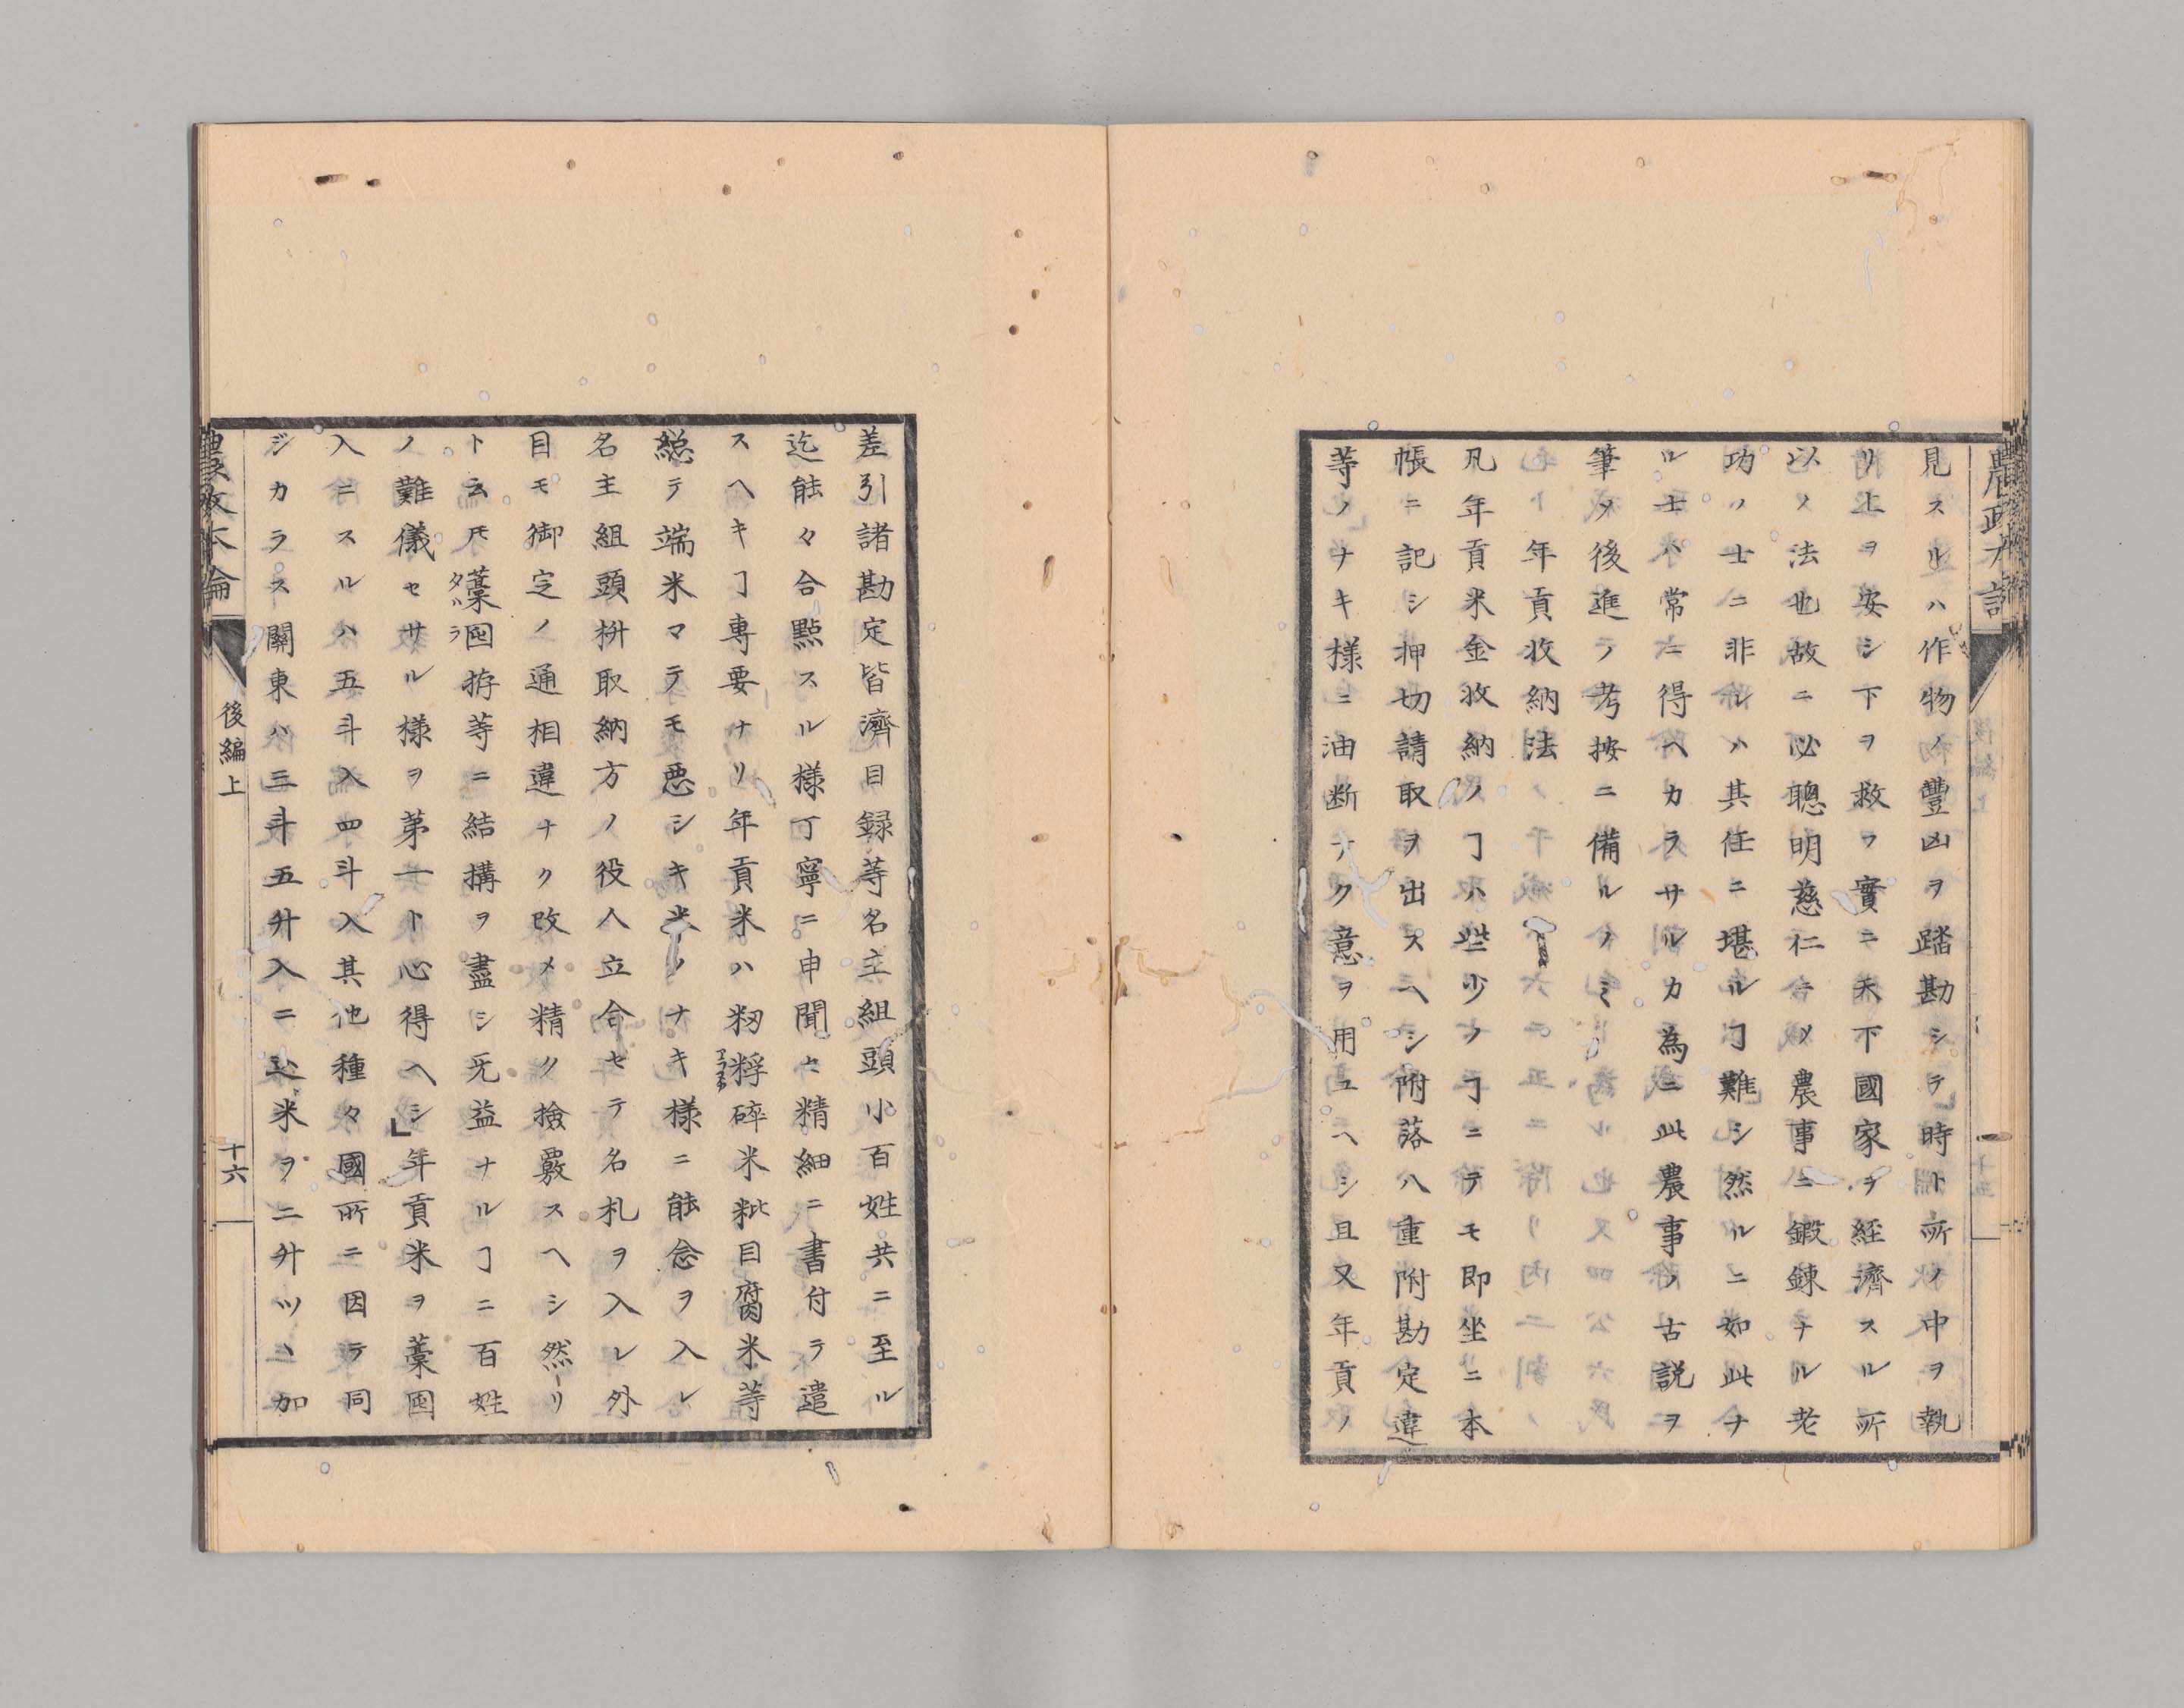 見スルハ作物ノ豐凶ヲ踏勘シテ時ト所ノ中ヲ執
リ上ヲ安シ下ヲ救フ實ニ天下國家ヲ経濟スル所
以ノ法也故ニ必聰明慈仁ニメ農事ニ鍛錬ナル老
功ノ士ニ非レハ其任ニ堪ルヿ難シ然ルニ如此ナ
ル士ハ常ニ得ヘカラサルカ為ニ此農事ノ古説ヲ
筆メ後進ラ考按ニ備ルノミ
年貢收納法
凡年貢米金收納ノヿハ些少ノヿニテモ即坐ニ本
帳ニ記シ押切請取ヲ出スヘシ附落ハ重附勘定違
等ノナキ様ニ油断ナク意ヲ用ユヘシ且又年貢ノ
差引諸勘定皆濟目録等名主組頭小百姓共ニ至ル
迄能々合點スル様丁寧ニ申聞セ精細ニ書付テ遣
スヘキヿ專要ナリ年貢米ハ籾粰碎米粃目腐米等
総テ端米マテモ悪シキ米ノナキ様ニ能念ヲ入レ
名主組頭枡取納方ノ役人立合セテ名札ヲ入レ外
目モ御定ノ通相違ナク改メ精ク撿覈スヘシ然リ
ト云𪜈藁囤拵等ニ結構ヲ盡シ无益ナルヿニ百姓
ノ難儀セサル様ヲ第一ト心得ヘシ」年貢米ヲ藁囤
入ニスルハ五斗入四斗入其他種々國所ニ因テ同
ジカラス關東ハ三斗五升入ニ込米ヲ二升ツヽ加
後編上
十六